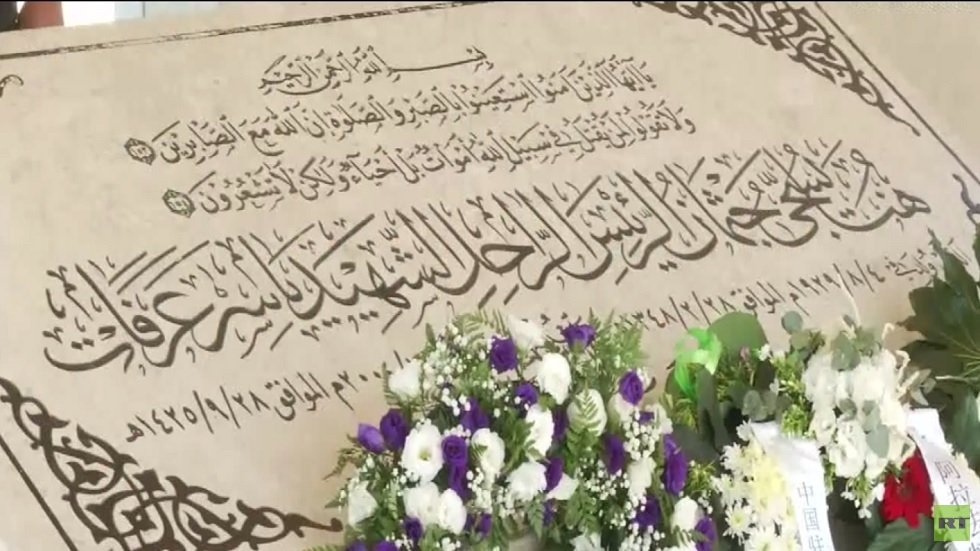 بسم الله الرحمن الرحيم
يا أيها الذين آمنوا استعينوا بالصبر والصلوة إن الله مع الصابرين
ولا تقولوا لمن يقتل في سبيل الله أموات بل أحياء ولكن لا تشعرون
هنا يسجى جثمان الرئيس الراحل الشهيد ياسر عرفات
في ٤/٨/١٩٢٩م الموافق ٢٨/٢/١٣٤٨هـ
م الموافق ٢٨/٩/١٤٢٥هـ
中国驻
阿拉
RT